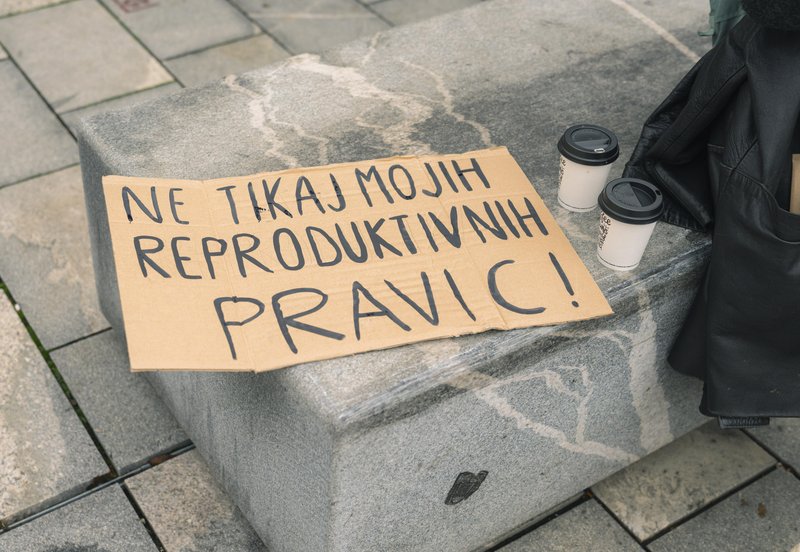 NE TIKAJ MOJIH
REPRODUKTIVNIH
PRAVIC!